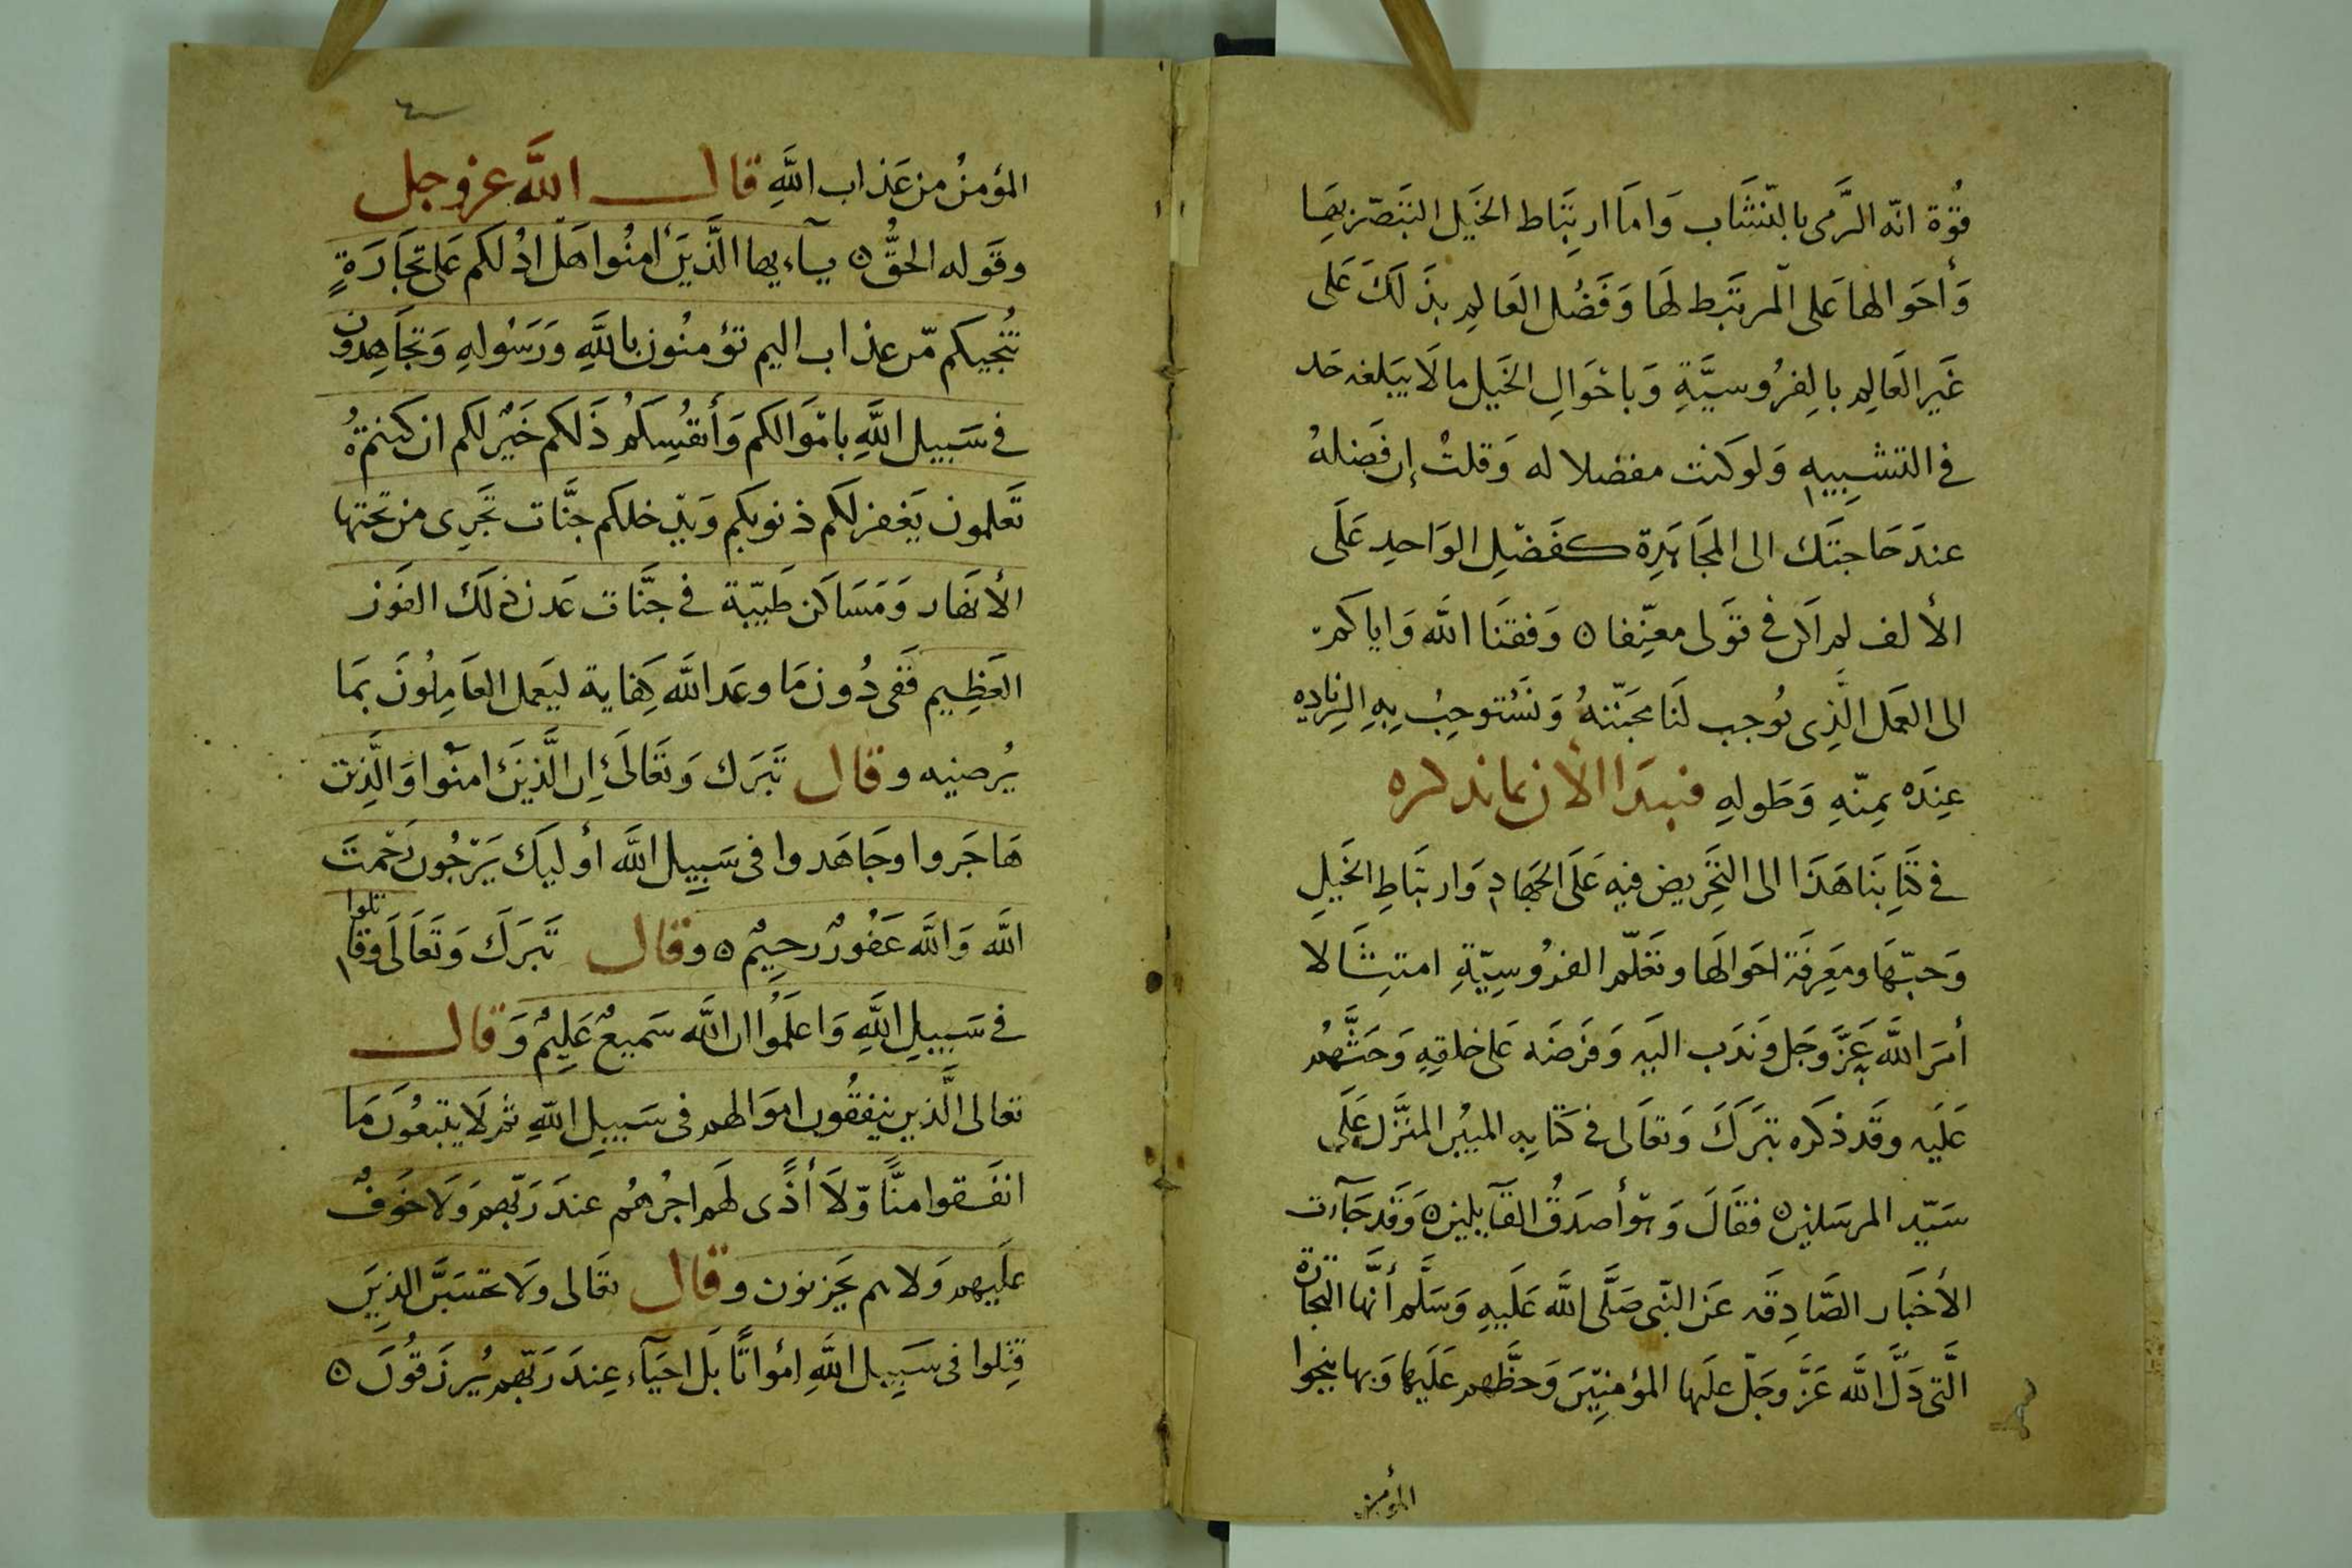 قُوّة انّه الرَّمى بالنّشَّاب وَامَا ارتِبَاط الخَيل التبَصّر بهَا
وَأحوَالها عَلى المرتَبط لهَا وَفَضُل العَالِم بذَلكَ عَلى
غَير العَالِم بالِفرُوسيَّةِ وَباحْوَالِ الخَيل ما لَا يبَلغه حَد
فى التشبِيهِ وَلو كنت مفضلا له وَقلتُ إن فَضلهُ
عندَ حَاجتَك الى المجَاهَدِة كفَضْلِ الوَاحدِ عَلَى
الألف لم اَكن فى قَولى معنِّفا ٥ وَفقنَا الله وَاياكم
الى العَمل الَّذِى يُوجب لَنَا محَبّتهُ وَنَسْتوجِبُ بِهِ الزياده
عِندَه بمِنّهِ وَطَولهِ فنبدَا الأن بما نذكره
فى كتَابنَا هَذَا الى التَحرِيض فيهِ عَلَى الجهَادِ وَارتبَاطِ الخَيلِ
وَحبّهَا ومعَرِفَة احَوالهَا وتَعَلّم الفرُوسِيّةِ امتِثَالا
أمَر اللَّه عَزَّ وَجَل وَندَب اليَهِ وَفَرضَه عَلى خلقِهِ وَحَثَّهُم
عَلَيه وقَد ذكَره تبَرَكَ وَتعَالى فى كتَابِهِ المبيْن المنَزَّل عَلَى
سَيّد المرسَلين ٥ فقَالَ وَهوَ أصدَقُ القَآيلين ٥ وَقَد جَآءت
الأخبَار الصَّادِقَه عَن النّبى صَلَّى اللَّه عَلَيهِ وَسَلَّم أنّهَا التجَارة
الَّتى دَلَّ اللَّه عَزَّ وجَلّ علَيها المؤمنِيَن وَحظَّهم عَلَيها وَبها ينجوا
المؤمن
المؤمنُ من عَذاب اللَّهِ قال اللَّه عز وجل
وقَوله الحَقُّ ٥ يــآءيها الَّذينَ اٰمنُوا هَل ادُلكم عَلى تجَارَةٍ
تُنجيكم مّن عذاب اليم تؤمنُون باللَّهِ وَرَسُولهِ وَتجَاهِدُون
فى سَبيل اللَّهِ بامْوَالكم وَأنفُسِكمُ ذَلكم خَيْر لكم ان كنتمْ
تَعلمون يَغفر لكَم ذنوبكم وَيدْخلكم جنَّات تَجَرِى من تحتها
الأنهَار وَمَسَاكن طَيّبة فى جنَّات عَدن ذٰلَكَ الفَوْز
العَظِيم فَفى دُون مَا وعَد اللَّه كِفاية ليَعمل العَامِلُونَ بمَا
يُرضيه وقال تَبَرَك وَتَعَالَىٰ اِن الَّذينَ اٰمنُوا وَالَّذِين
هَاجَروا وجَاهَدوا فى سَبِيل اللَّه أوليَك يَرْجُون رَحْمتَ
اللَّه وَاللَّه غَفُورٌ رحِيمٌ ٥ وقال تَبَرَكَ وَتَعَالَى وقاتلوا
فى سَبِيلِ اللَّهِ وَاعلَمُوا ان اللَّه سَميعٌ عَلِيمٌ وَقال
تعالى الَّذين ينفقُون اموَالهم فى سَبيلِ اللَّهِ ثم لَا يتبعُونَ مَا
انفَـقوا منًّا وّلَا أذًى لهَم اجرُهُم عندَ رَبّهم وَلَا خَوفٌ
علَيهم وَلا هم يَحَزنون وقال تعَالى ولَا تحَسَبَّن الذِينَ
قُتِلوا فى سَبِيل اللَّهِ امْواتًا بَل احيَآء عِندَ رَبّهِم يُرزَقُونَ ٥